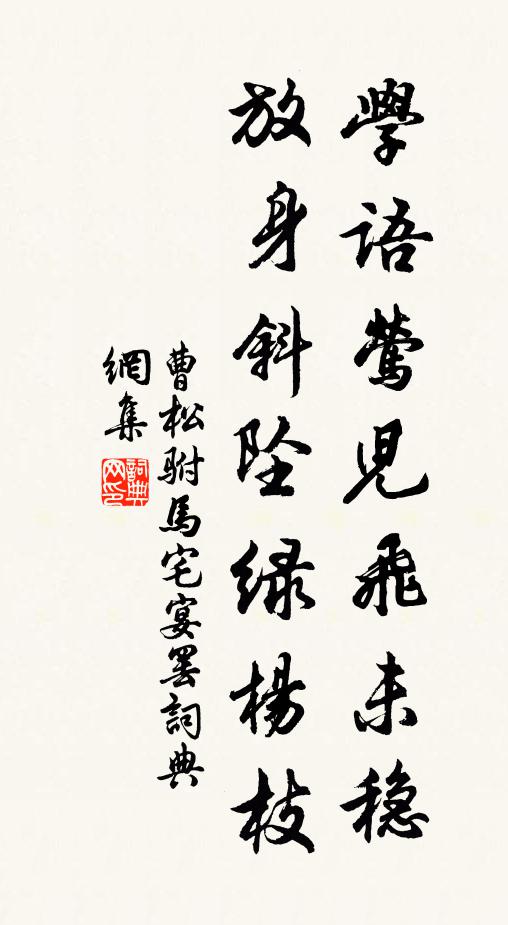 學語鶯兒飛未穩
放身斜坠緑楊枝
曹松駙馬宅宴罷詞典
網集
詞典
网印